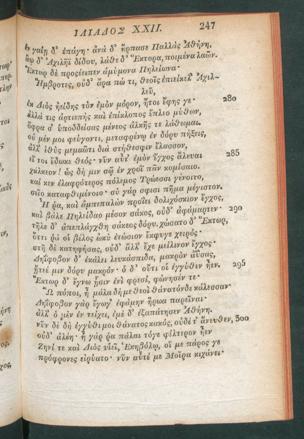 ΙΛΙΑΔΟΣ ΧΧΙΙ. 247
ἐν γαίῃ δ' ἐπάγη· ἀνὰ δ' ἥρπασε Παλλὰς Ἀθήνη,
ἂψ δ' Ἀχιλῆϊ δίδου, λάθε δ' Ἕκτορα, ποιμένα λαῶν.
Ἕκτωρ δὲ προσέειπεν ἀμύμονα Πηλείωνα·
Ἤμβροτες, οὐδ' ἄρα πώ τι, θεοῖς ἐπιείκελ' Ἀχιλ-
λεῦ,
ἐκ Διὸς ἠείδης τὸν ἐμὸν μόρον, ἤτοι ἔφης γε· 280
ἀλλά τις ἀρτιεπὴς καὶ ἐπίκλοπος ἔπλεο μύθων,
ὄφρα σ' ὑποδδείσας μένεος ἀλκῆς τε λάθωμαι.
οὐ μέν μοι φεύγοντι, μεταφρένῳ ἐν δόρυ πήξεις,
ἀλλ' ἰθὺς μεμαῶτι διὰ στήθεσφιν ἔλασσον,
εἴ τοι ἔδωκε θεός· νῦν αὖτ' ἐμὸν ἔγχος ἄλευαι 285
χάλκεον! ὡς δή μιν σῷ ἐν χροῒ πᾶν κομίσαιο.
καί κεν ἐλαφρότερος πόλεμος Τρώεσσι γένοιτο,
σεῖο καταφθιμένοιο· σὺ γάρ σφισι πῆμα μέγιστον.
Ἦ ῥα, καὶ ἀμπεπαλὼν προΐει δολιχόσκιον ἔγχος,
καὶ βάλε Πηλείδαο μέσον σάκος, οὐδ' ἀφάμαρτεν· 290
τῆλε δ' ἀπεπλάγχθη σάκεος δόρυ. χώσατο δ' Ἕκτωρ,
ὅττι ῥά οἱ βέλος ὠκὺ ἐτώσιον ἔκφυγε χειρός·
στῆ δὲ κατηφήσας, οὐδ' ἄλλ' ἔχε μείλινον ἔγχος·
Δηΐφοβον δ' ἐκάλει λευκάσπιδα, μακρὸν ἀΰσας,
ᾔτεέ μιν δόρυ μακρόν· ὁ δ' οὔτι οἱ ἐγγύθεν ἦεν. 295
Ἕκτωρ δ' ἔγνω ᾗσιν ἐνὶ φρεσί, φώνησέν τε·
Ὢ πόποι, ἦ μάλα δή με θεοὶ θάνατόνδε κάλεσσαν·
Δηΐφοβον γὰρ ἔγωγ' ἐφάμην ἥρωα παρεῖναι·
ἀλλ' ὁ μὲν ἐν τείχει, ἐμὲ δ' ἐξαπάτησεν Ἀθήνη.
νῦν δὲ δὴ ἐγγύθι μοι θάνατος κακός, οὐδέ τ' ἄνευθεν, 300
οὐδ' ἀλκή· ἦ γάρ ῥα πάλαι τόγε φίλτερον ἦεν
Ζηνί τε καὶ Διὸς υἱεῖ, Ἑκηβόλῳ, οἵ με πάρος γε
πρόφρονες εἰρύατο· νῦν αὖτέ με Μοῖρα κιχάνει·